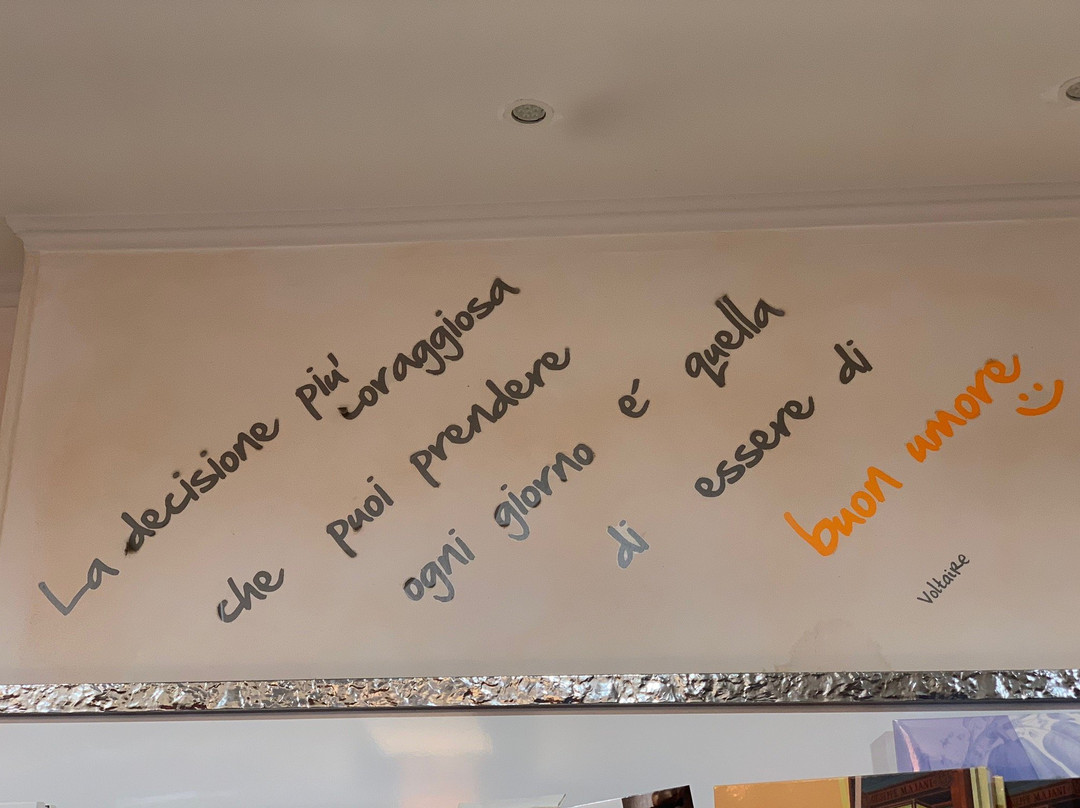 La decisione piu' coraggiosa
che puoi prendere
ogni giorno e' quella
di essere di
buon umore
Voltaire